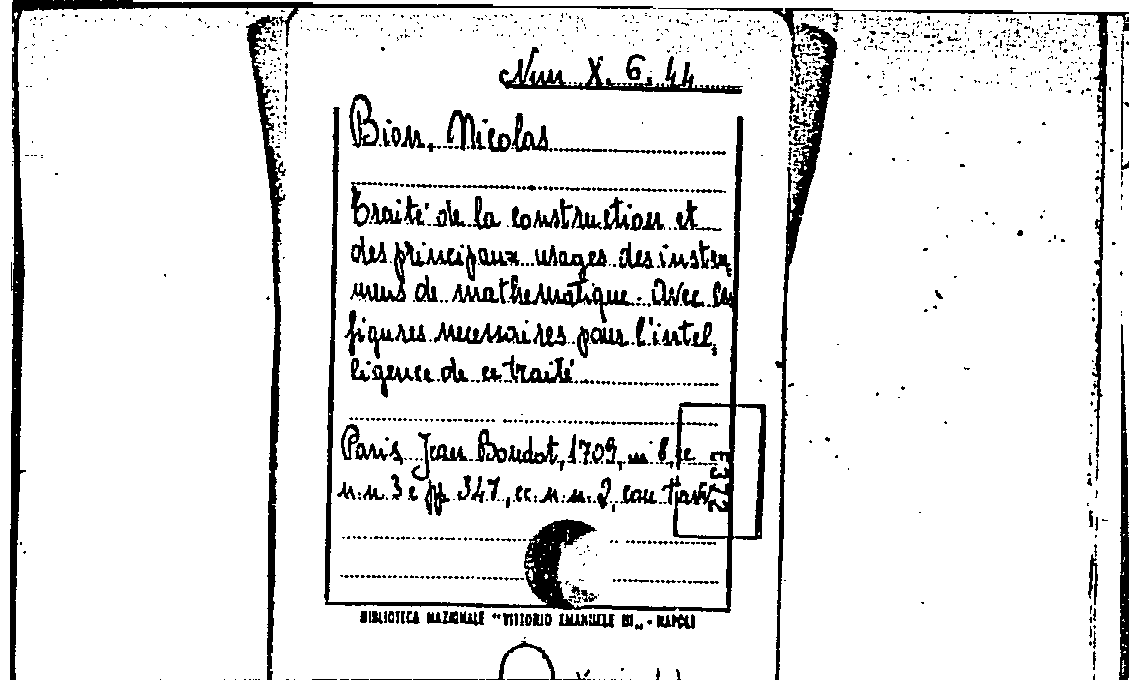 Num X. 6. 44
Bion, Nicolas
Traité de la construction et
des principaux usages des instru
mens de mathematique. Avec les
figures necessaires pour l'intel,
ligence de ce traité
Paris, Jean Boudot, 1709, in 8, cc
n.n. 3 e pp. 347, cc. n.n. 2, con tavv.
E3372
BIBLIOTECA NAZIONALE "VITTORIO EMANUELE III" - NAPOLI